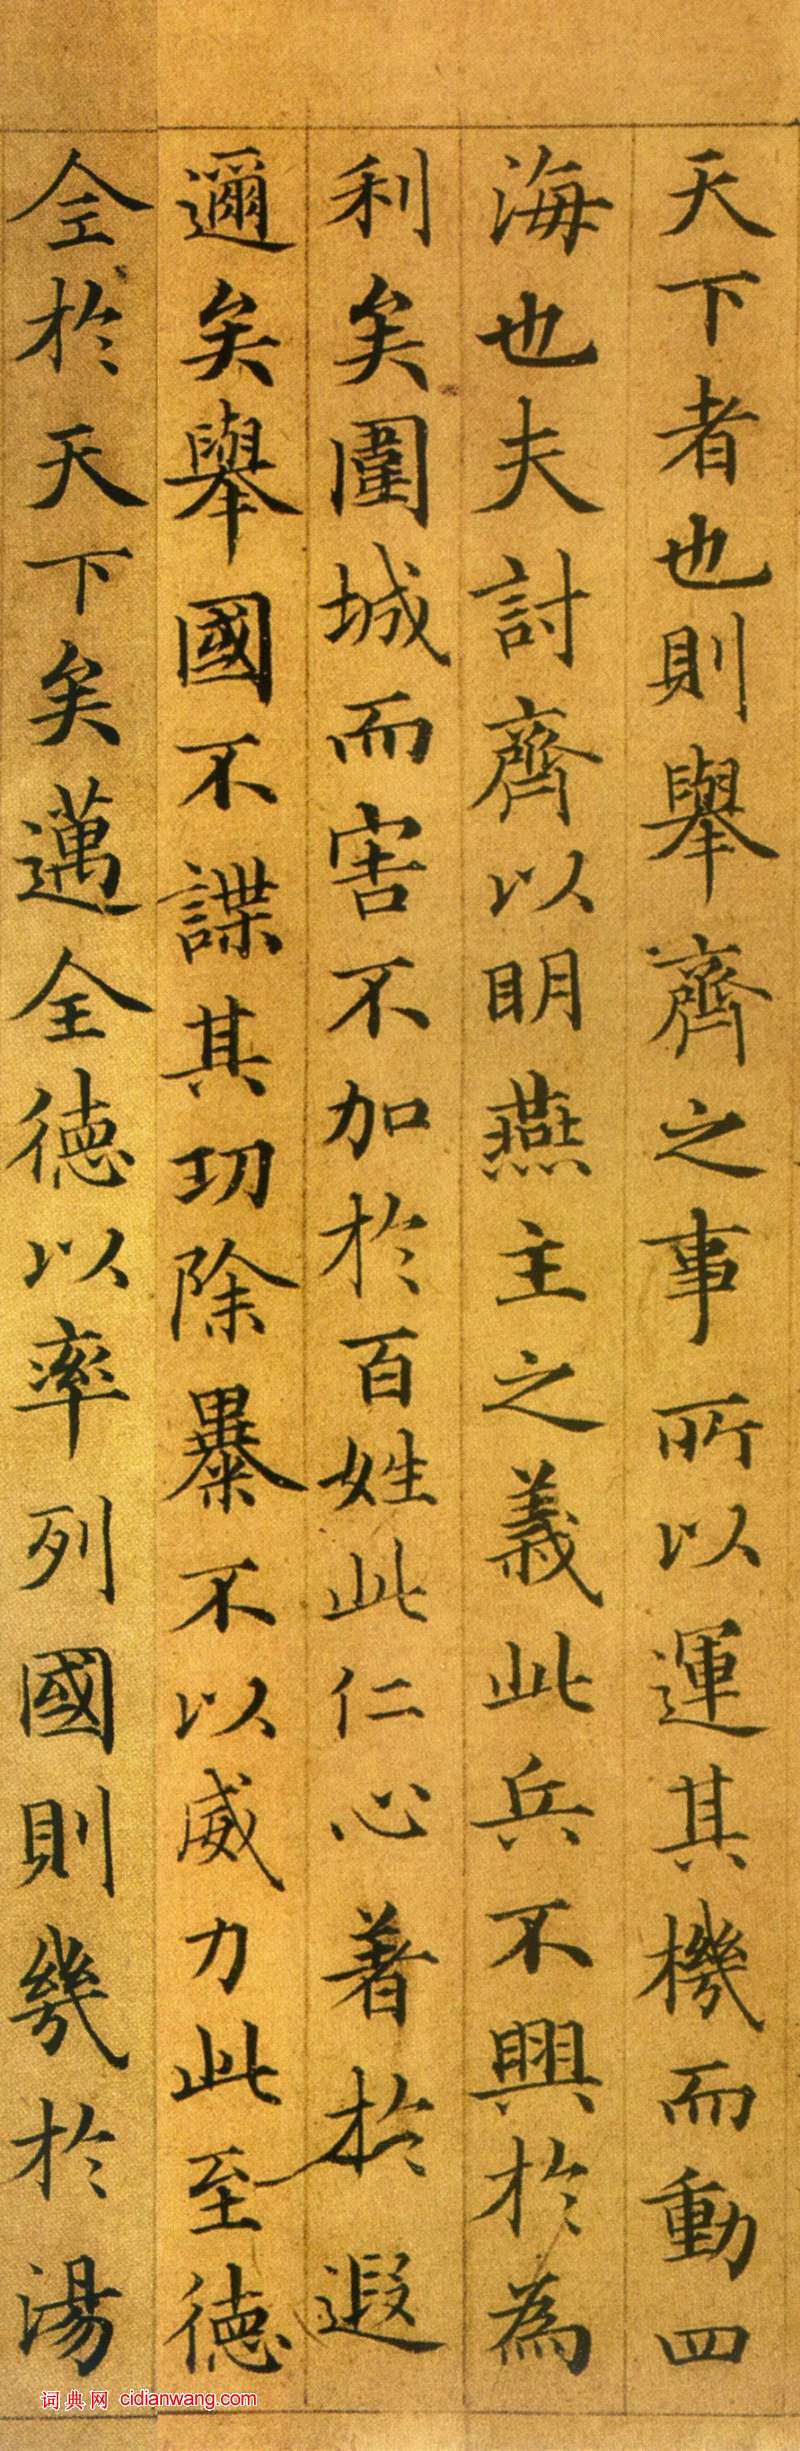 天下者也則舉齊之事所以運其機而動四
海也夫討齊以明燕主之義此兵不興於為
利矣圍城而害不加於百姓此仁心著於遐
邇矣舉國不謀其功除暴不以威力此至德
全於天下矣邁全德以率列國則幾於湯
词典网 cidianwang.com